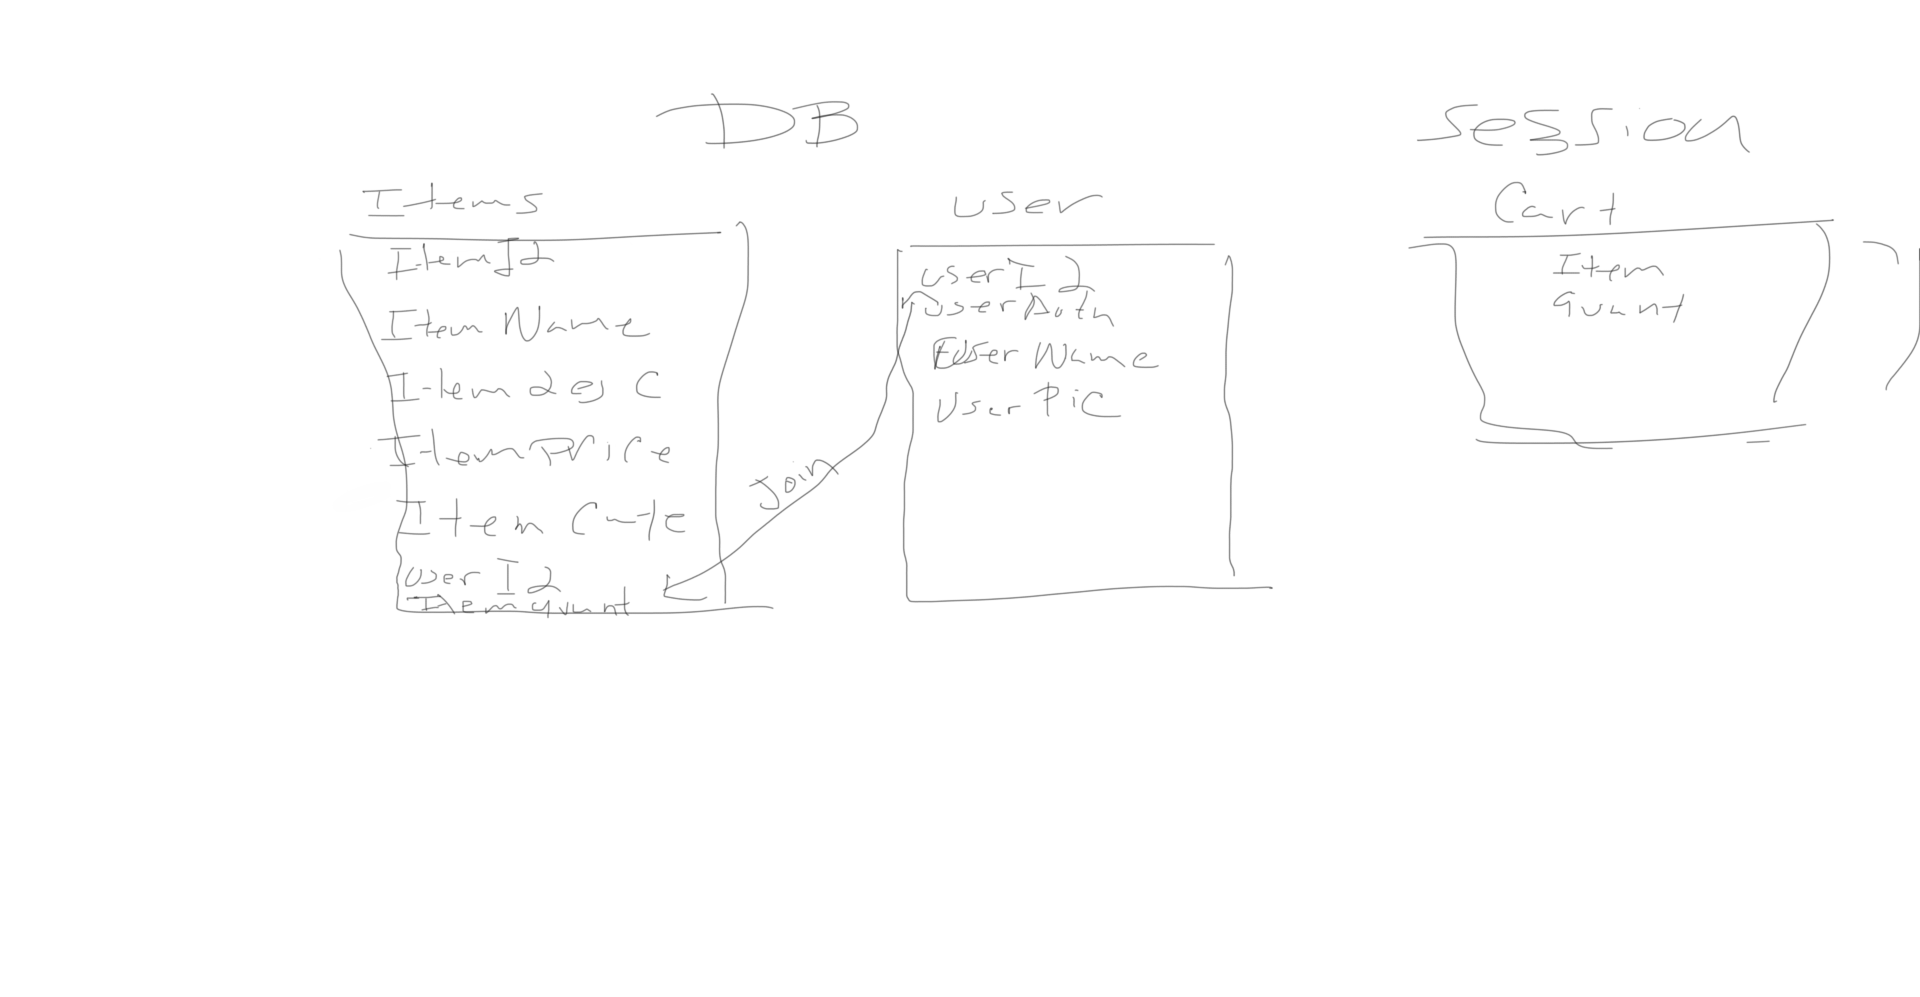 DB
Session
Items
ItemId
Item Name
Item desc
Item Price
Item Cate
user Id
Item quant
Join
user
user Id
user Auth
User Name
User Pic
Cart
Item
Quant